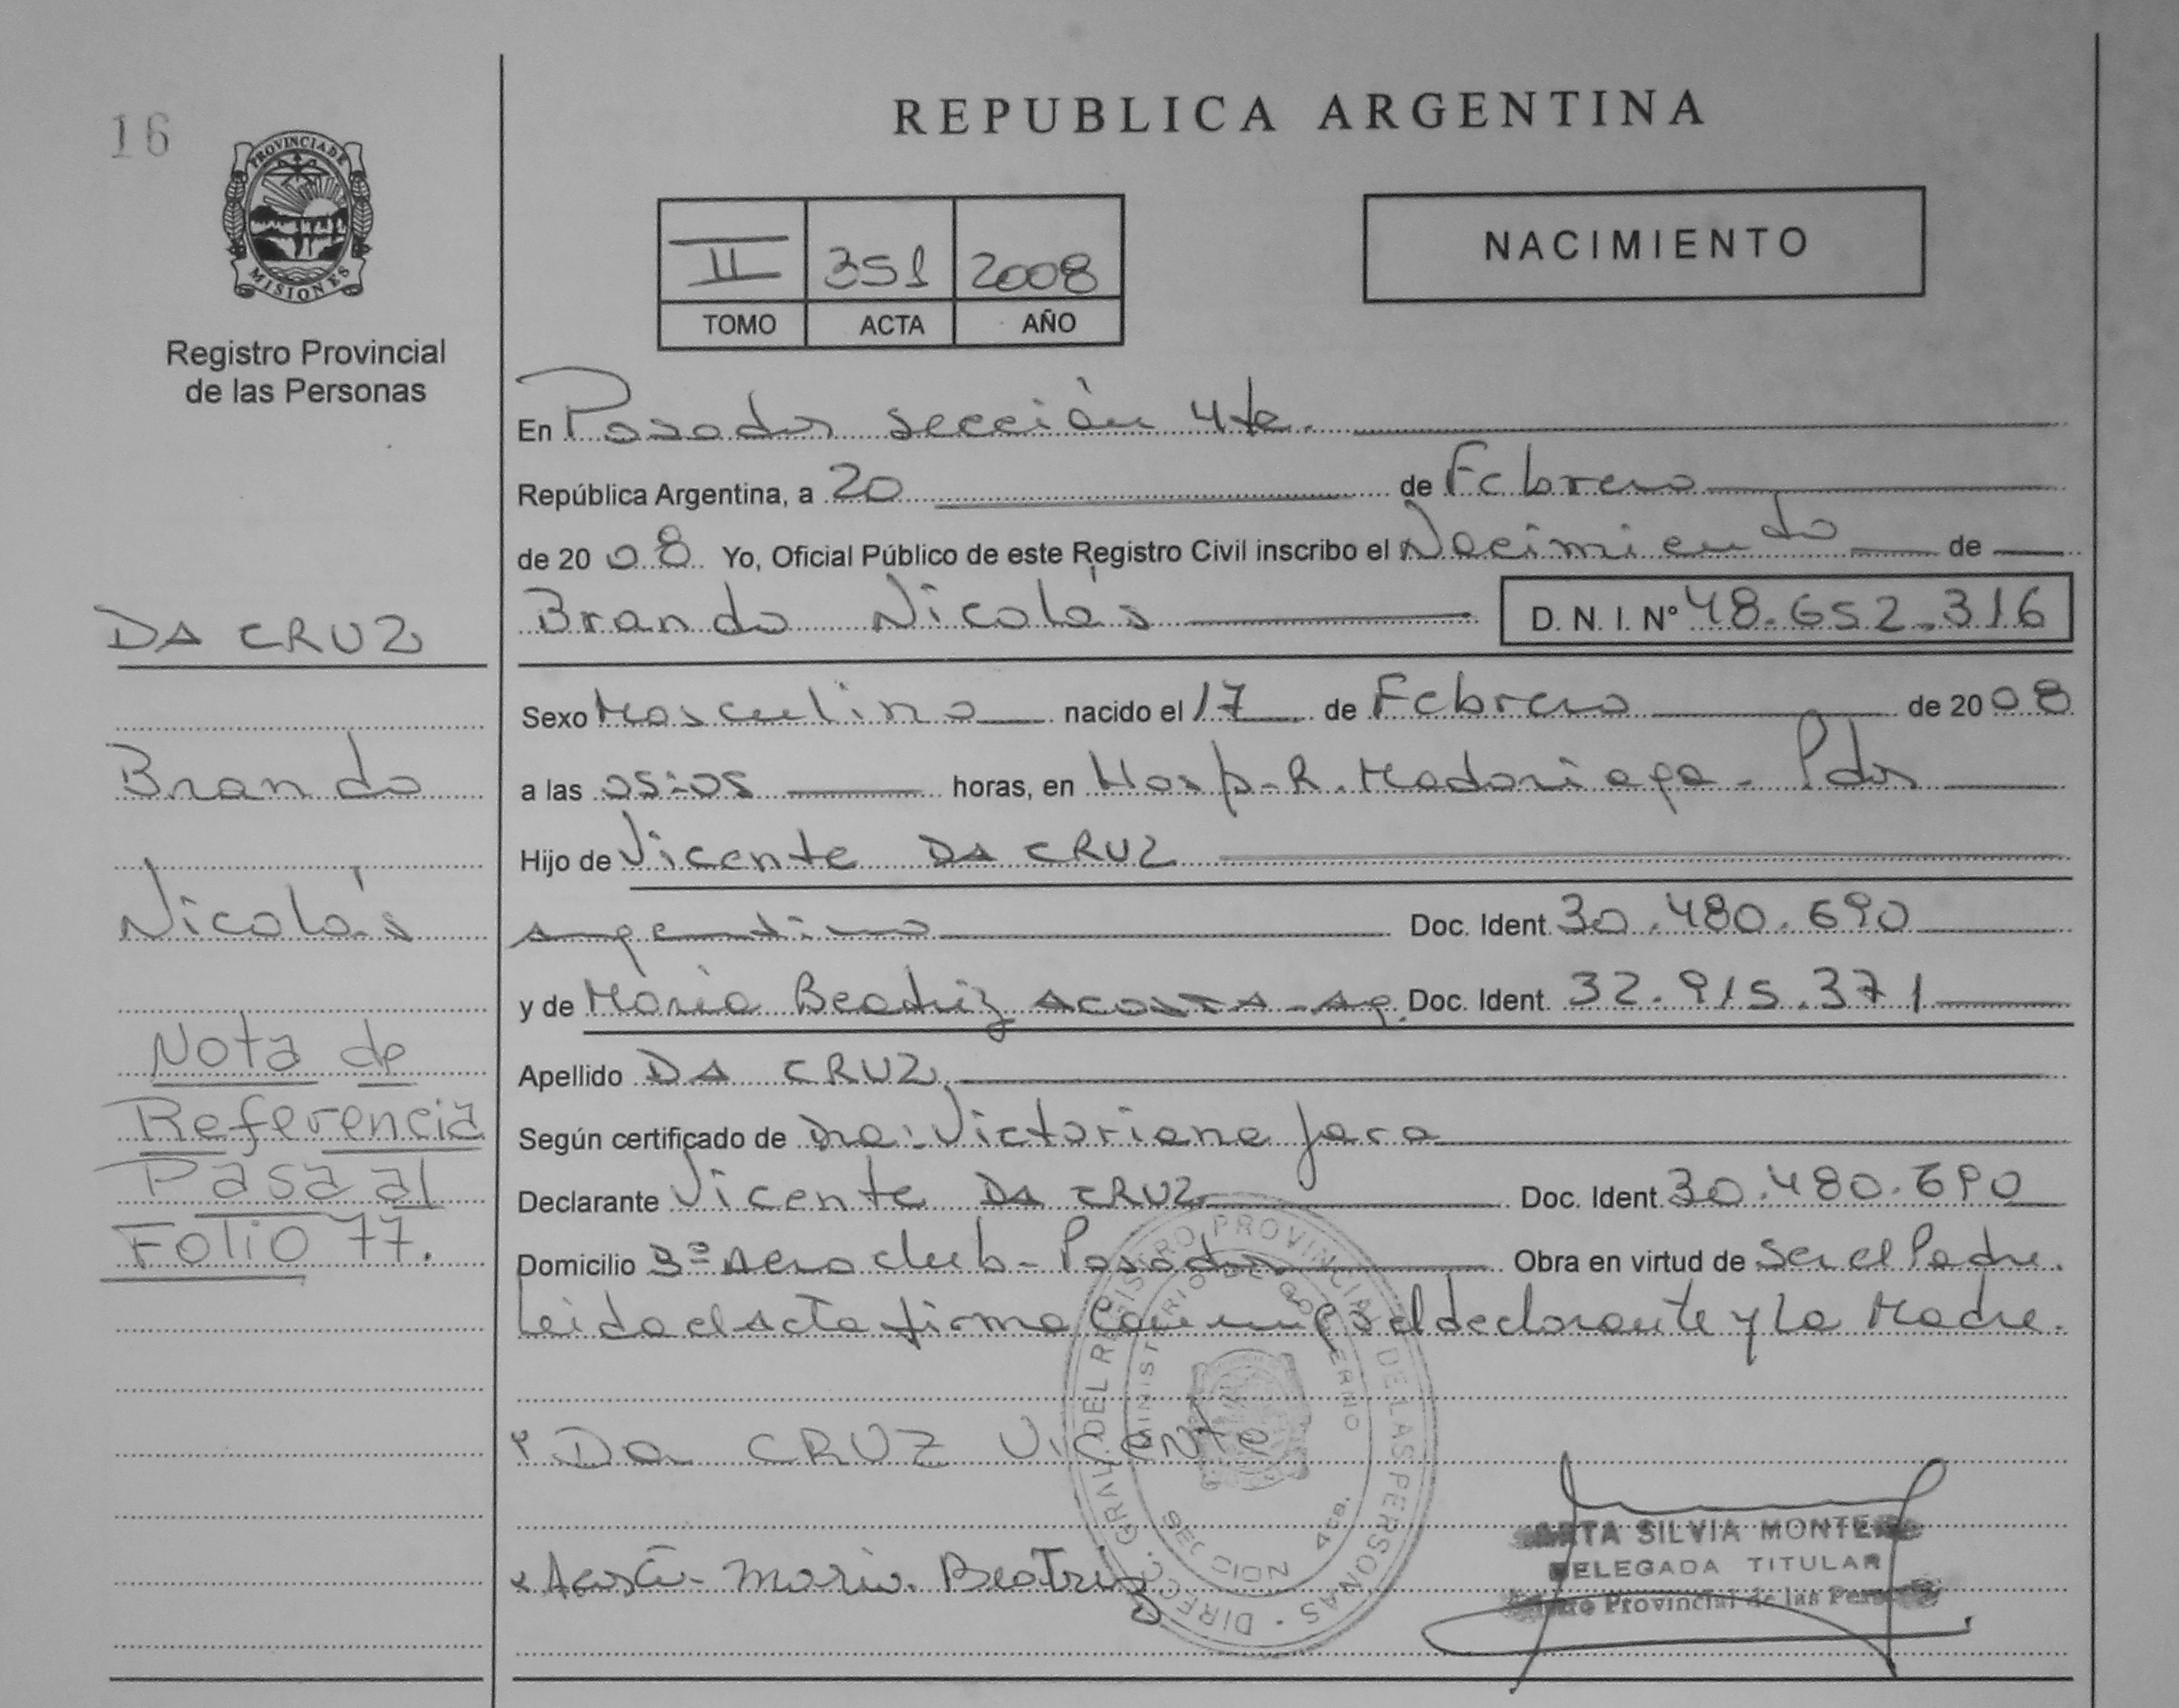 16
PROVINCIA DE
MISIONES
Registro Provincial
de las Personas
REPUBLICA ARGENTINA
II 351 2008
TOMO ACTA AÑO
NACIMIENTO
En Posadas sección 4ta.
República Argentina, a 20 de Febrero
de 20 08 Yo, Oficial Público de este Registro Civil inscribo el Nacimiento de
Brando Nicolás D. N. I. Nº 48.652.316
Sexo Masculino nacido el 17 de Febrero de 20 08
a las 05:05 horas, en Hosp. R. Madariaga - Pdas
Hijo de Vicente DA CRUZ
argentino Doc. Ident. 30.480.690
y de María Beatriz ACOSTA - Ag. Doc. Ident. 32.915.371
Apellido DA CRUZ
Según certificado de Dra. Victoriana Jara
Declarante Vicente DA CRUZ Doc. Ident. 30.480.690
Domicilio 3º Aero club - Posadas Obra en virtud de ser el Padre.
Leida el Acta firma conmigo el declarante y La Madre.
DA CRUZ
Brando
Nicolás
Nota de
Referencia
Pasa al
Folio 77.
Da CRUZ VICENTE
Acosta Maria Beatriz
DIRECC. GRAL. DEL REGISTRO PROVINCIAL DE LAS PERSONAS
MINISTERIO DE GOBIERNO
SECCION 4ta.
SILVIA MONTE
DELEGADA TITULAR
Provincial de las